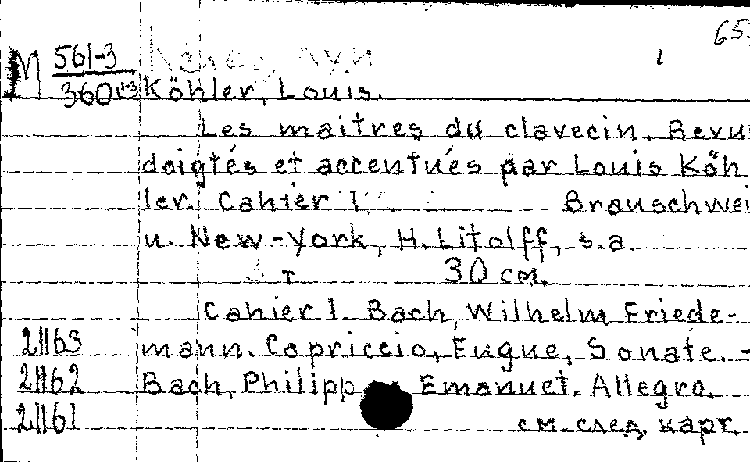 65
M 561-3 1
360 Köhler, Louis.
Les maitres du clavecin. Revu
doigtés et accentués par Louis Köh
ler. Cahier 1 Braunschwei
u. New-York, H. Litolff, s.a.
т 30 см.
Cahier 1. Bach, Wilhelm Friede-
21163 mann. Capriccio, Fugue, Sonate. -
21162 Bach, Philipp Emanuel. Allegro.
21161 см. след. карт.